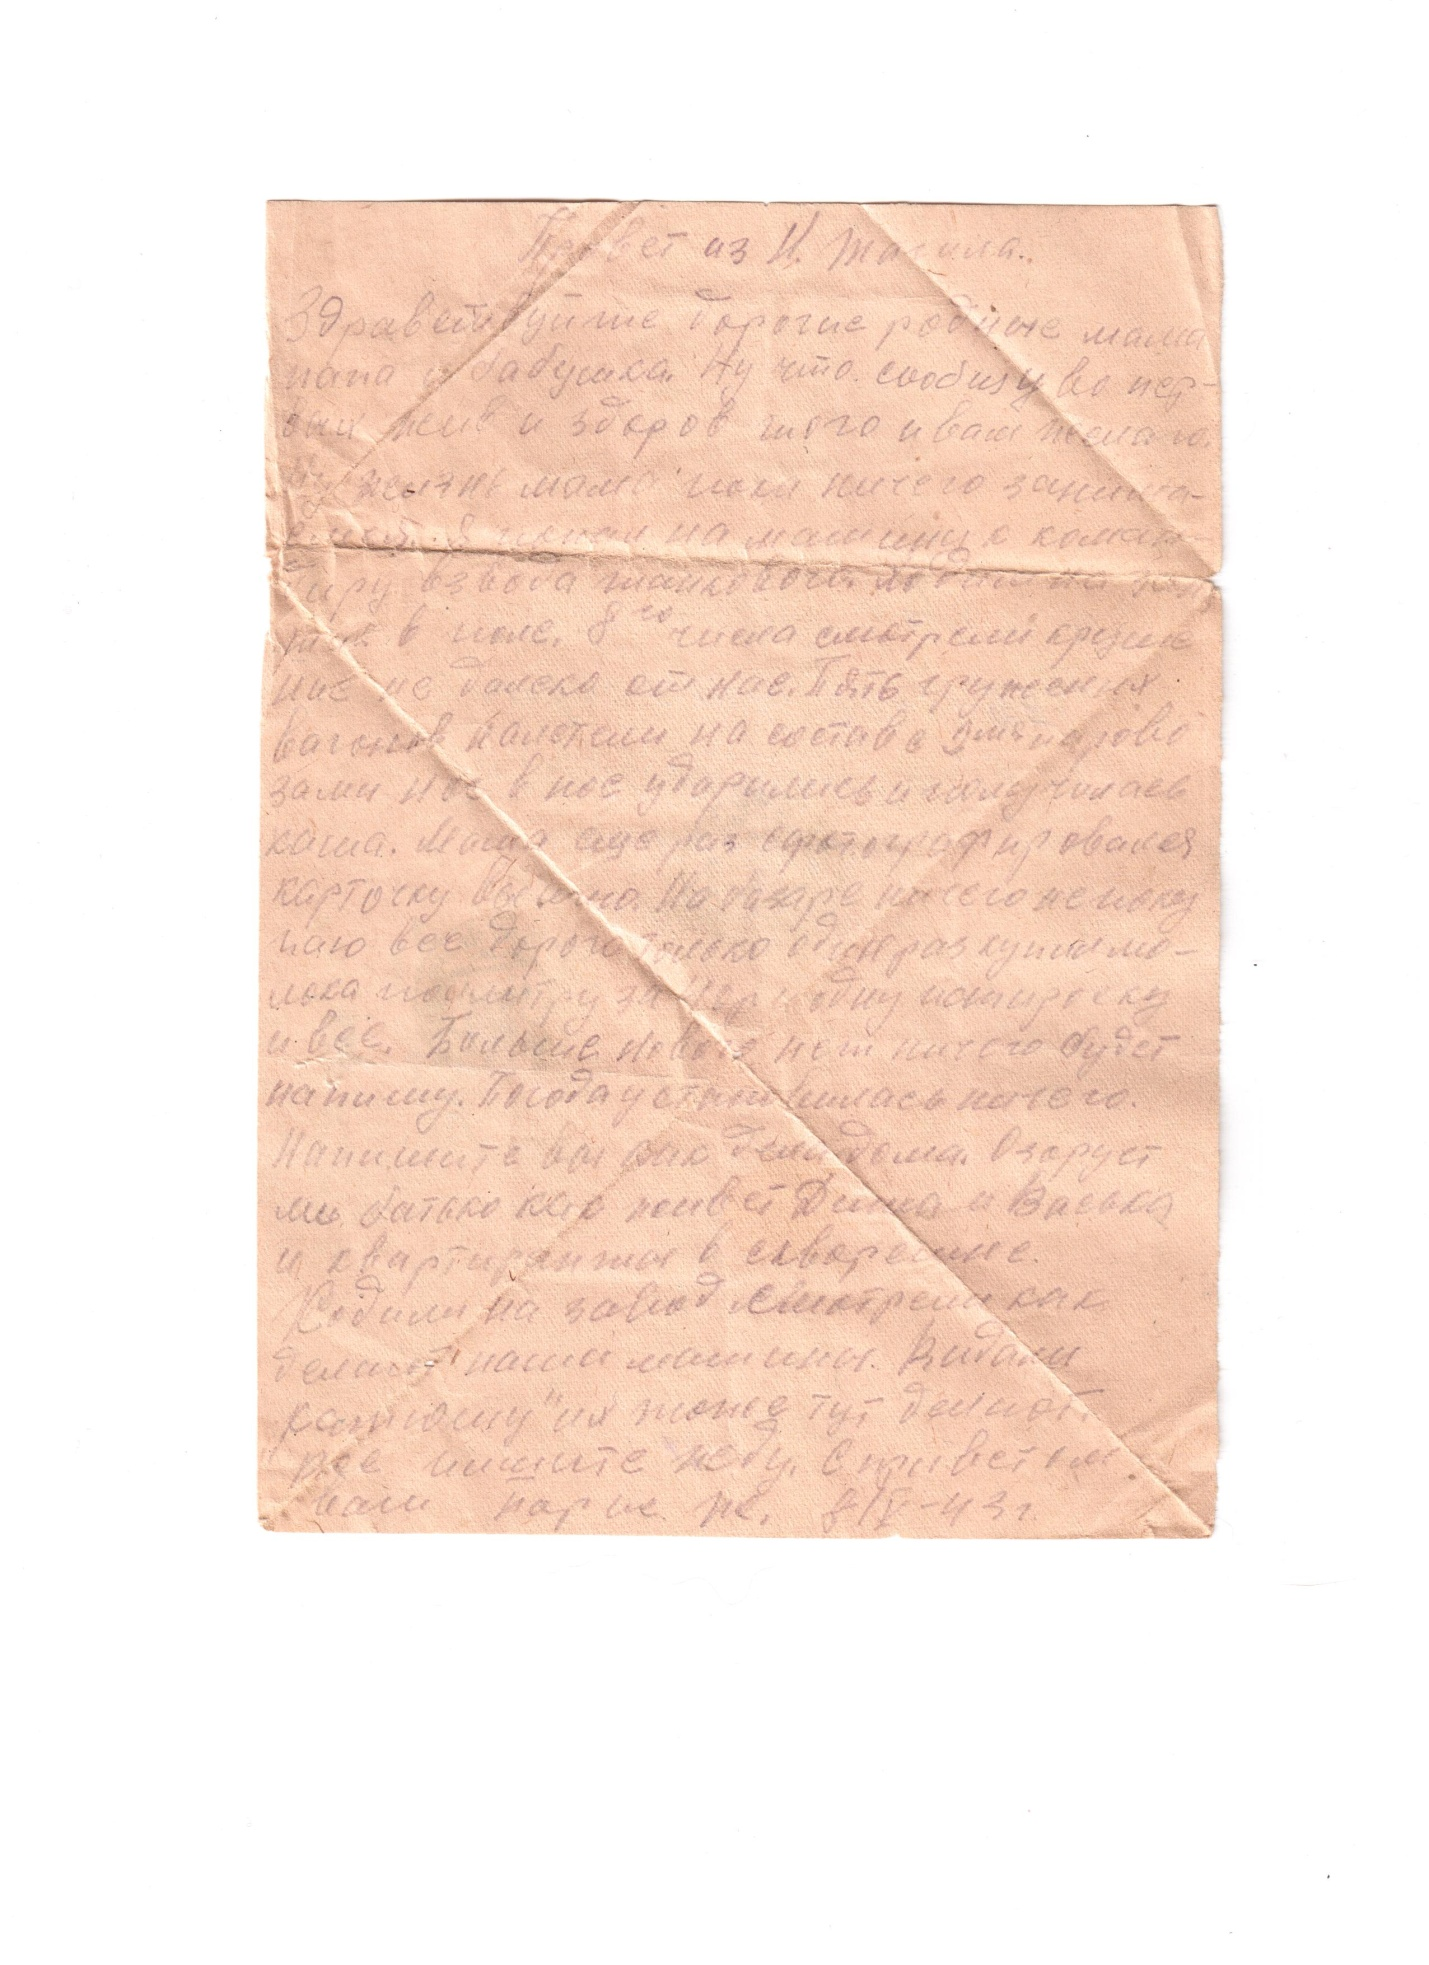 Привет из Н. Тагила.
Здравствуйте дорогие родные мама
папа и бабушка. Ну что сообщу во пер-
вых жив и здоров того и вам желаю.
Ну жизнь мама пока ничего занима-
емся. Я попал на машину к коман-
диру взвода танкового.
в поле. 8го числа смотрели круше
ние не далеко от нас. Пять груженых
вагонов налетели на состав с 2мя парово
зами нос в нос ударились и получилась
каша. Мама еще раз сфотографировался
карточку вышлю. На базаре ничего не поку
паю все дорого только один раз купил мо-
лока поллитру за и одну папироску
и все. Больше нового нет ничего будет
напишу. Погода установилась ничего.
Напишите вы как дела дома. Озорует
ли батько как живет Дина и Васька
и квартиранты в скворешне.
Ходили на завод смотрели как
делают наши машины. Видали
"катюшу" их тоже тут делают.
все пишите жду. С приветом
ваш 8/IV-43 г.